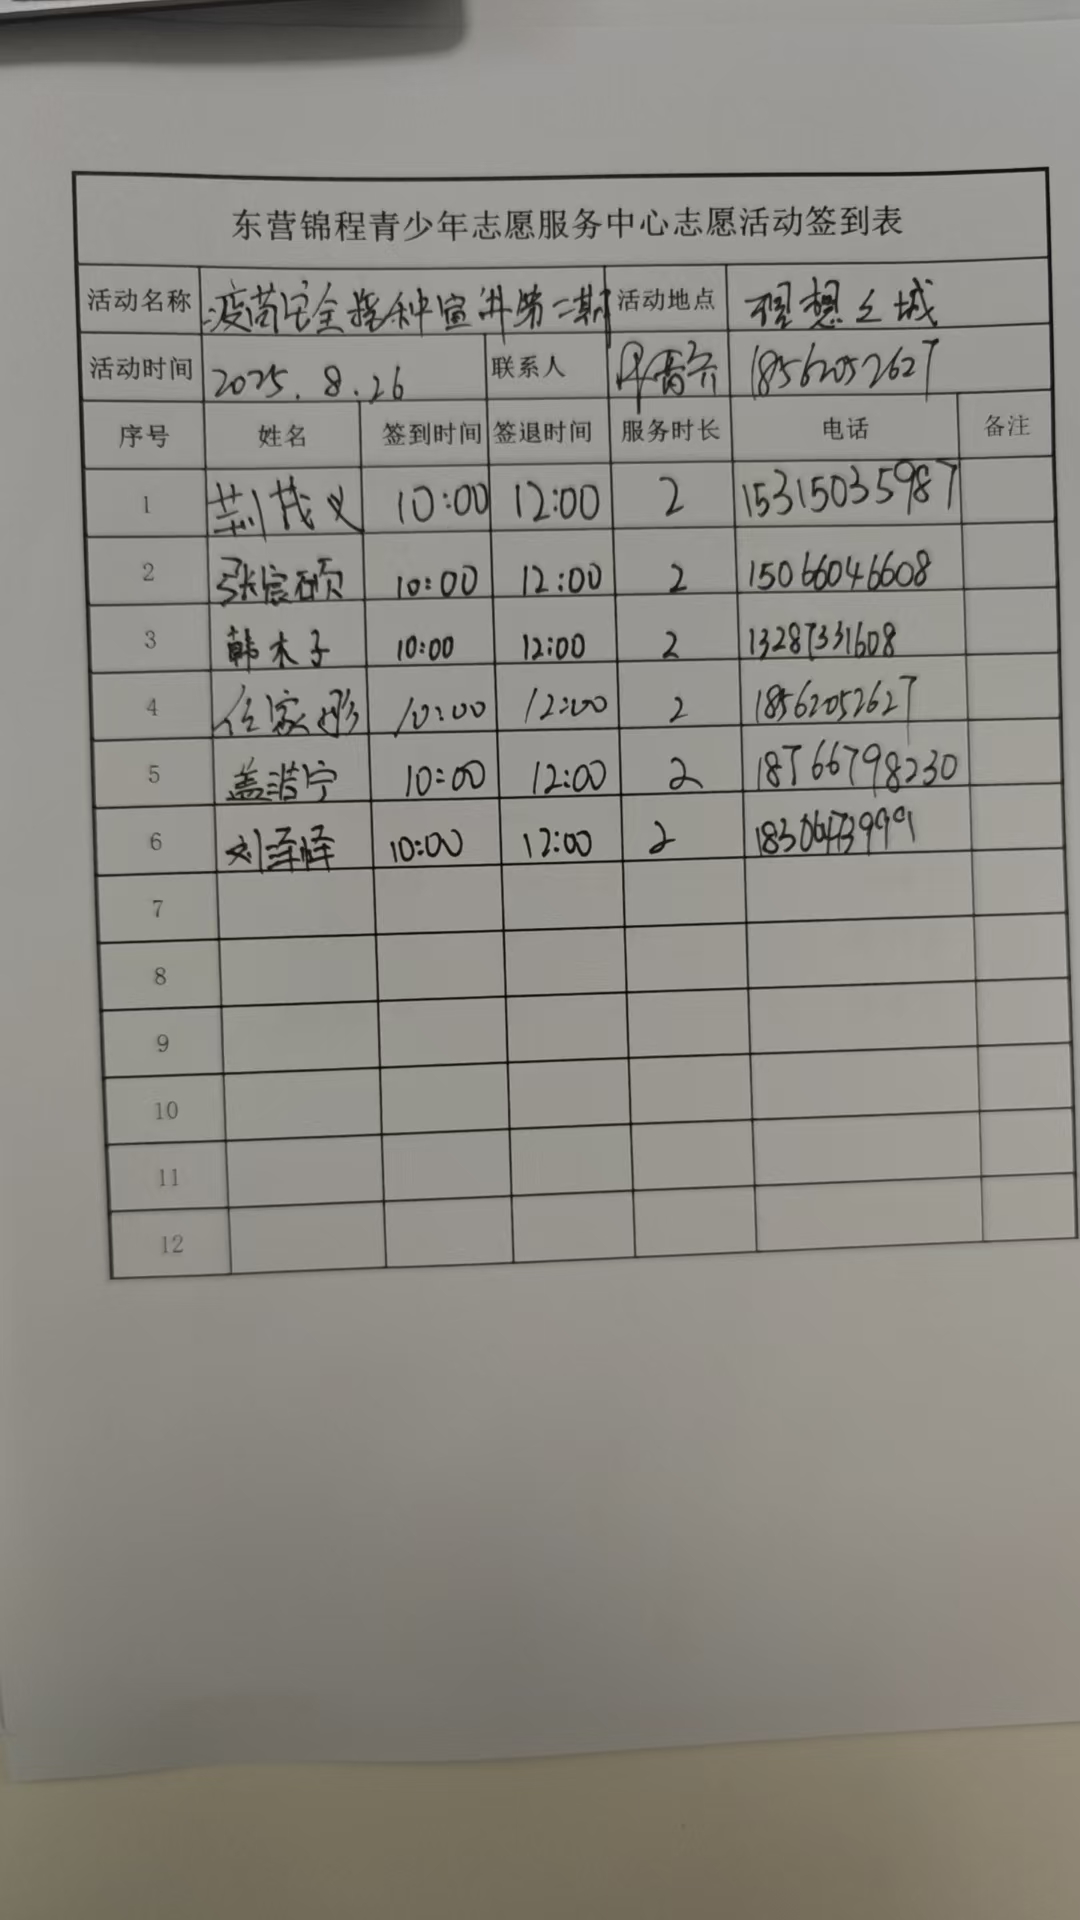 东营锦程青少年志愿服务中心志愿活动签到表
活动名称 疫苗安全接种宣讲第二期 活动地点 理想之城
活动时间 2025.8.26 联系人 18562052627
序号 姓名 签到时间 签退时间 服务时长 电话 备注
1 荆茂义 10:00 12:00 2 15315035987
2 张宸硕 10:00 12:00 2 15066046608
3 韩木子 10:00 12:00 2 13287331608
4 任家彤 10:00 12:00 2 18562052627
5 盖浩宁 10:00 12:00 2 18766798230
6 刘泽怿 10:00 12:00 2 18306473999
7
8
9
10
11
12